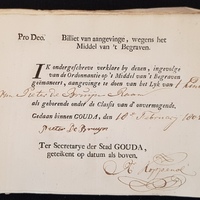 Pro Deo. Billiet van aangevinge, wegens het
Middel van 't Begraven.
IK ondergeschreve verklare by dezen, ingevolge
van de Ordonnantie op 't Middel van 't Begraven
geëmaneert, aangeving te doen van het Lyk van 1 Kind
van Pieter de Bruyn
als gehorende onder de Classis van d' onvermogende.
Gedaan binnen GOUDA, den 10e February
Pieter de Bruyn
Ter Secretarye der Stad GOUDA,
geteikent op datum als boven.